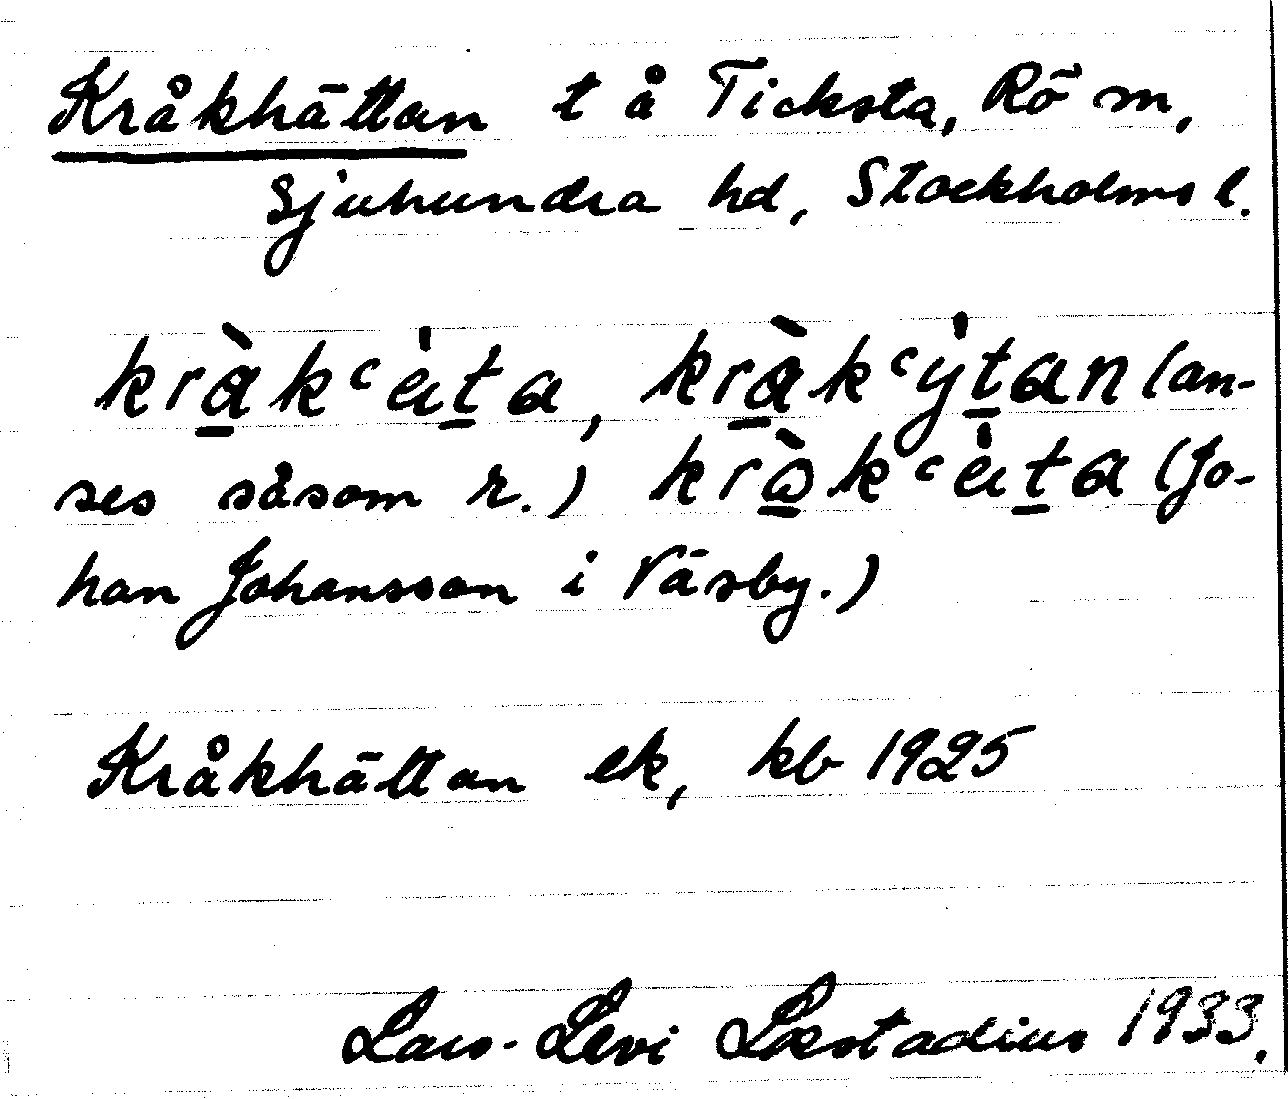 Kråkhättan t å Ticksta, Rö m,
Sjuhundra hd, Stockholms l.
kràkʿὰta, kràkʿýtan (an-
ses såsom r.) kràkʿὰta (Jo-
han Johansson i Väsby.)
Kråkhättan ek, kb 1925
Lars-Levi Læstadius 1933.